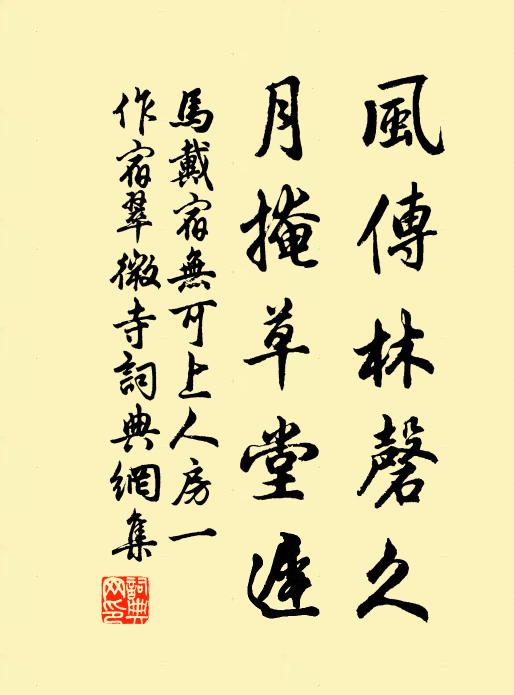 風傳林磬久
月掩草堂遲
馬戴宿無可上人房一
作宿翠微寺詞典網集
詞典網印